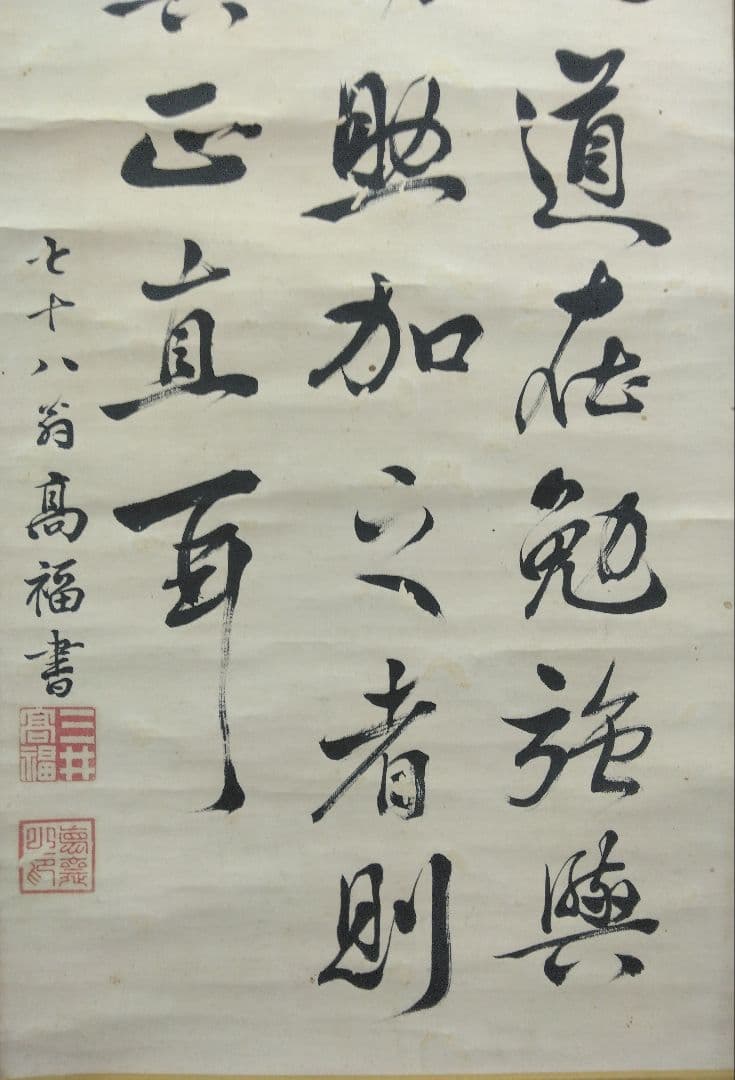 道在勉強與
加之者則
正直耳
七十八翁高福書
三井高福